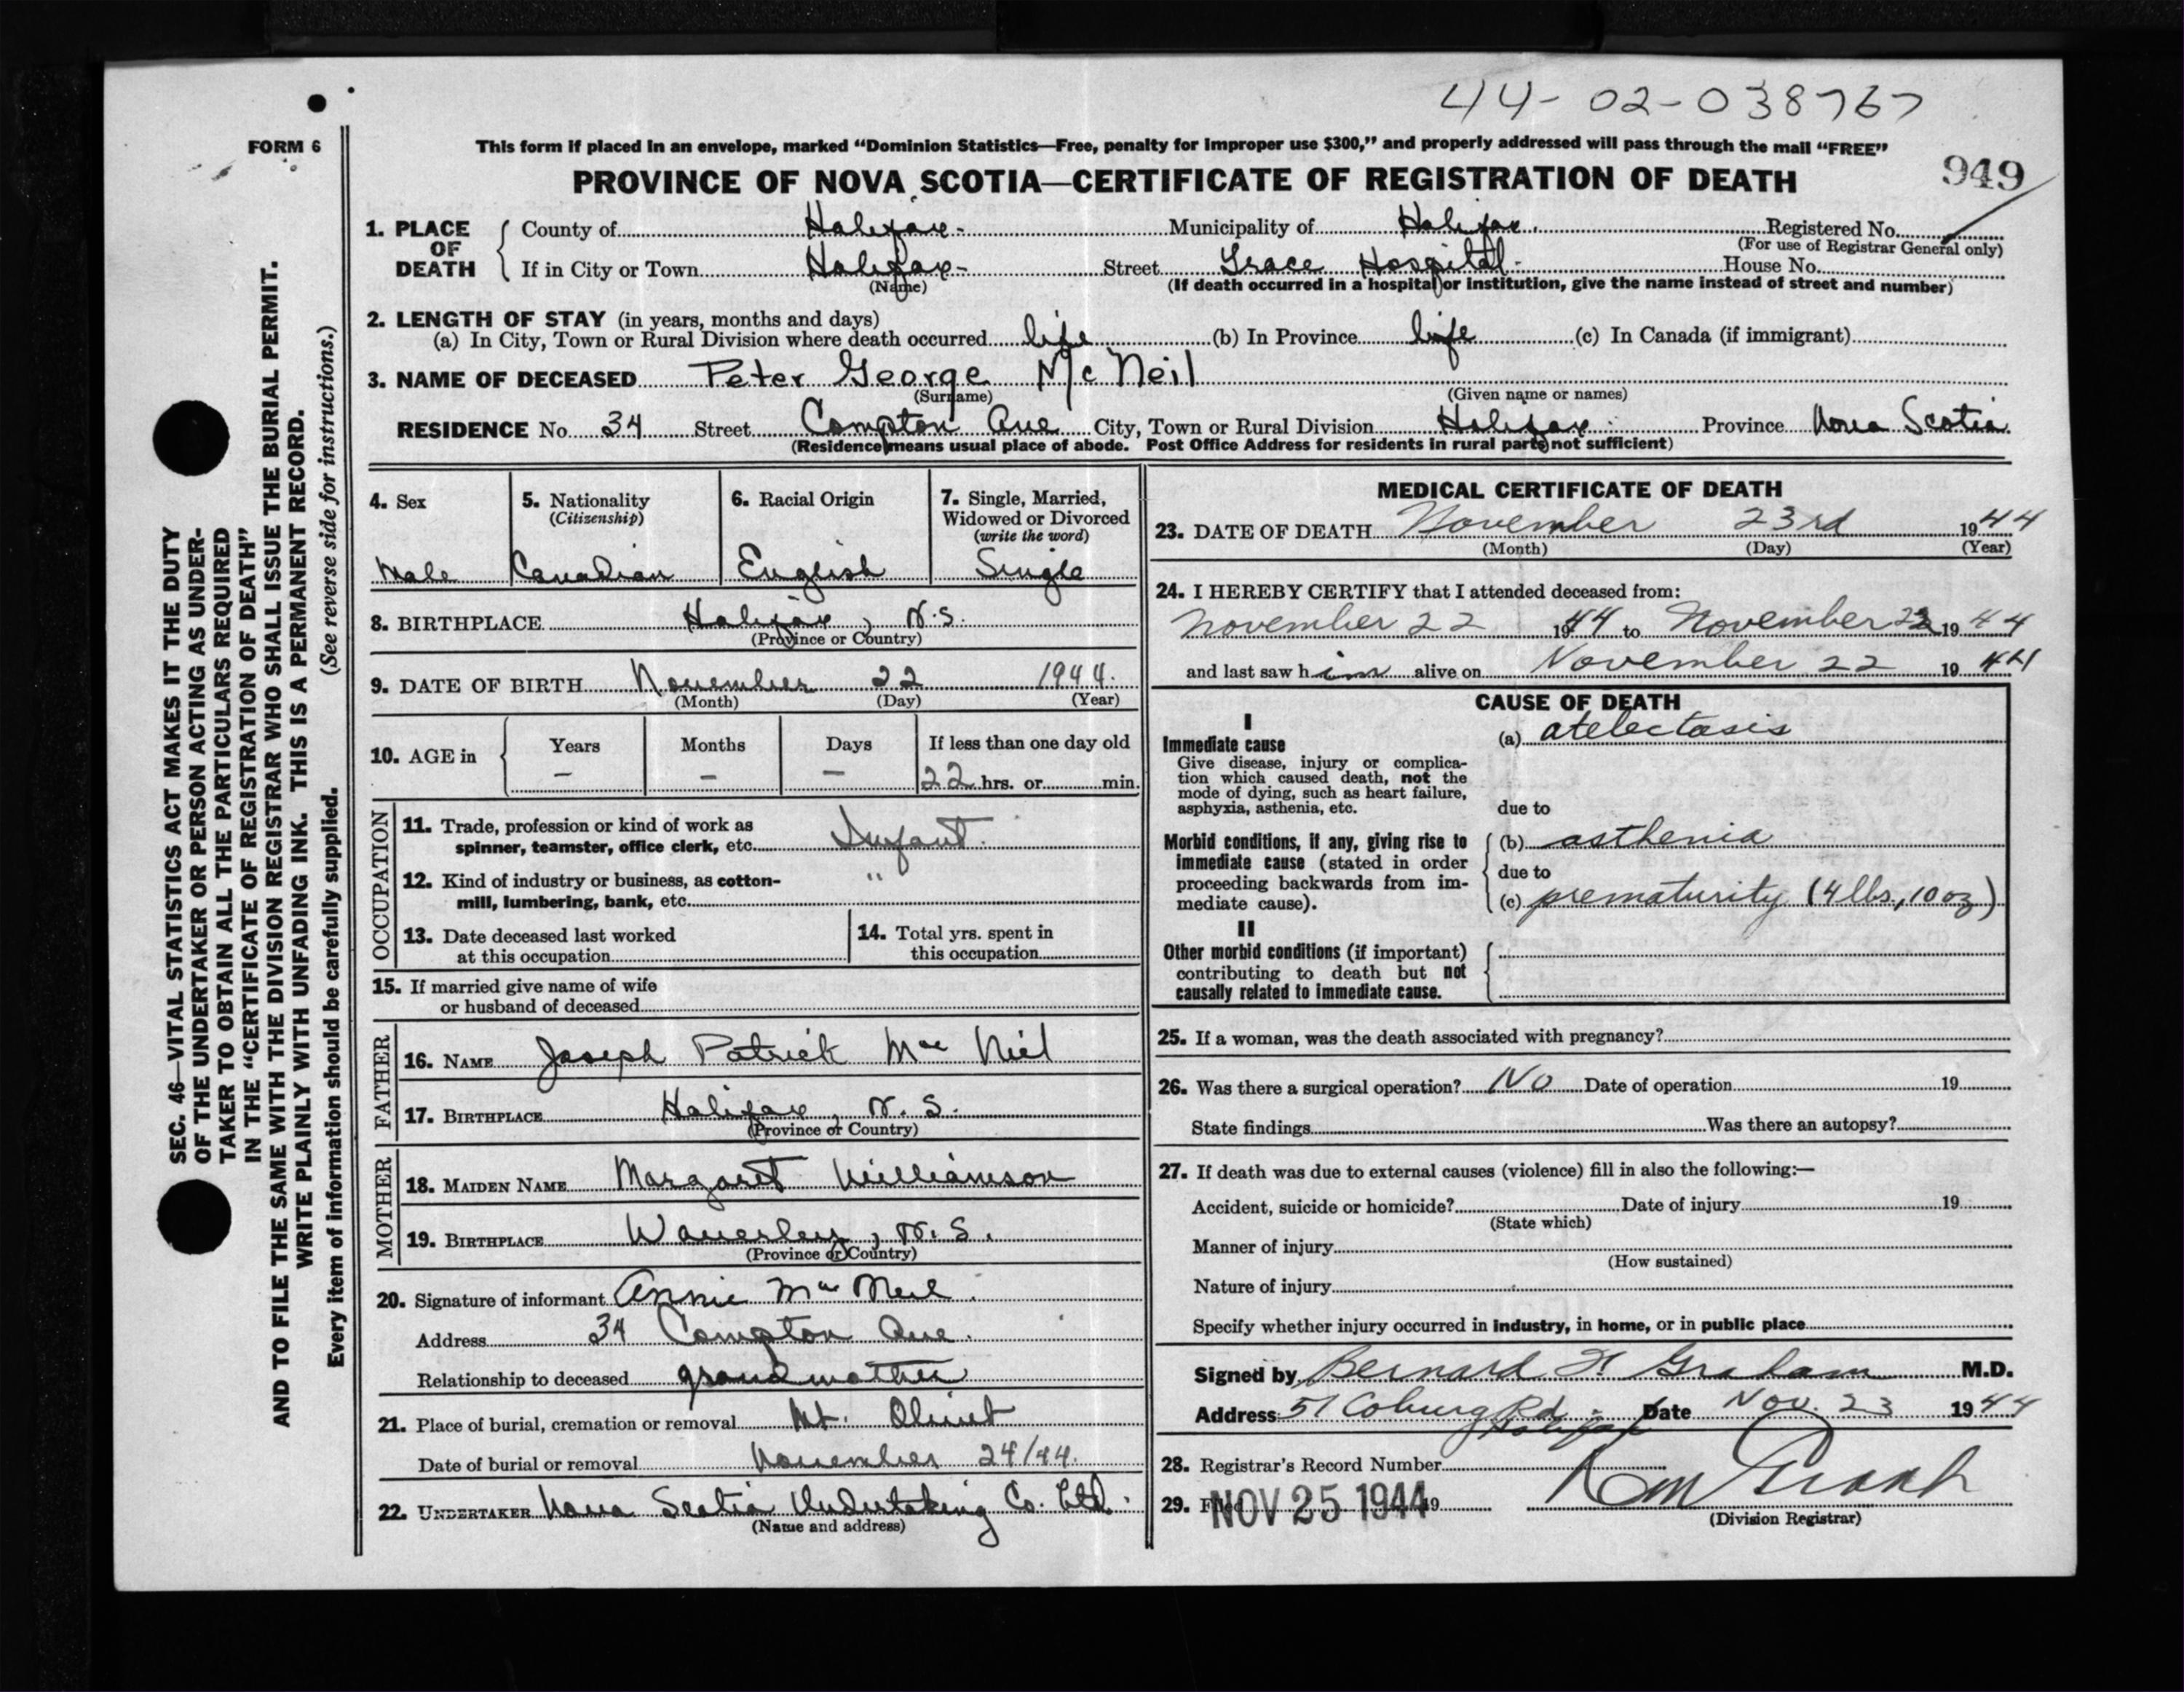 44-02-038767
FORM 6
This form if placed in an envelope, marked “Dominion Statistics—Free, penalty for improper use $300,” and properly addressed will pass through the mail “FREE”
949
PROVINCE OF NOVA SCOTIA—CERTIFICATE OF REGISTRATION OF DEATH
1. PLACE OF DEATH
County of Halifax- Municipality of Halifax. Registered No.
(For use of Registrar General only)
If in City or Town Halifax- Street Grace Hospital- House No.
(Name) (If death occurred in a hospital or institution, give the name instead of street and number)
2. LENGTH OF STAY (in years, months and days)
(a) In City, Town or Rural Division where death occurred life (b) In Province life (c) In Canada (if immigrant)
3. NAME OF DECEASED Peter George McNeil
(Surname) (Given name or names)
RESIDENCE No. 34 Street Compton Ave City, Town or Rural Division Halifax Province Nova Scotia.
(Residence means usual place of abode. Post Office Address for residents in rural parts not sufficient)
4. Sex
Male
5. Nationality
(Citizenship)
Canadian
6. Racial Origin
English
7. Single, Married,
Widowed or Divorced
(write the word)
Single
8. BIRTHPLACE Halifax, N.S.
(Province or Country)
9. DATE OF BIRTH November 22 1944.
(Month) (Day) (Year)
10. AGE in Years Months Days If less than one day old
— — — 22 hrs. or min.
OCCUPATION
11. Trade, profession or kind of work as
spinner, teamster, office clerk, etc. Infant.
12. Kind of industry or business, as cotton-
mill, lumbering, bank, etc. "
13. Date deceased last worked
at this occupation
14. Total yrs. spent in
this occupation
15. If married give name of wife
or husband of deceased
FATHER
16. NAME Joseph Patrick Mac Neil
17. BIRTHPLACE Halifax, N.S.
(Province or Country)
MOTHER
18. MAIDEN NAME Margaret Williamson
19. BIRTHPLACE Waverley, N.S.
(Province or Country)
20. Signature of informant Annie Mac Neil.
Address 34 Compton Ave.
Relationship to deceased grandmother
21. Place of burial, cremation or removal Mt. Olivet
Date of burial or removal November 24/44.
22. UNDERTAKER Nova Scotia Undertaking Co. Ltd.
(Name and address)
MEDICAL CERTIFICATE OF DEATH
23. DATE OF DEATH November 23rd 1944
(Month) (Day) (Year)
24. I HEREBY CERTIFY that I attended deceased from:
November 22 1944 to November 1944
and last saw him alive on November 22 1944
CAUSE OF DEATH
I
Immediate cause
Give disease, injury or complica-
tion which caused death, not the
mode of dying, such as heart failure,
asphyxia, asthenia, etc.
(a) atelectasis
due to
Morbid conditions, if any, giving rise to
immediate cause (stated in order
proceeding backwards from im-
mediate cause).
(b) asthenia
due to
(c) prematurity (4 lbs., 10 oz)
II
Other morbid conditions (if important)
contributing to death but not
causally related to immediate cause.
25. If a woman, was the death associated with pregnancy?
26. Was there a surgical operation? No Date of operation 19
State findings Was there an autopsy?
27. If death was due to external causes (violence) fill in also the following:—
Accident, suicide or homicide? Date of injury 19
(State which)
Manner of injury
(How sustained)
Nature of injury
Specify whether injury occurred in industry, in home, or in public place
Signed by Bernard F. Graham M.D.
Address 51 Coburg Rd. Date Nov. 23 1944
Halifax
28. Registrar's Record Number
29. Filed NOV 25 1944 19
(Division Registrar)
SEC. 46—VITAL STATISTICS ACT MAKES IT THE DUTY
OF THE UNDERTAKER OR PERSON ACTING AS UNDER-
TAKER TO OBTAIN ALL THE PARTICULARS REQUIRED
IN THE “CERTIFICATE OF REGISTRATION OF DEATH”
AND TO FILE THE SAME WITH THE DIVISION REGISTRAR WHO SHALL ISSUE THE BURIAL PERMIT.
WRITE PLAINLY WITH UNFADING INK. THIS IS A PERMANENT RECORD.
Every item of information should be carefully supplied. (See reverse side for instructions.)